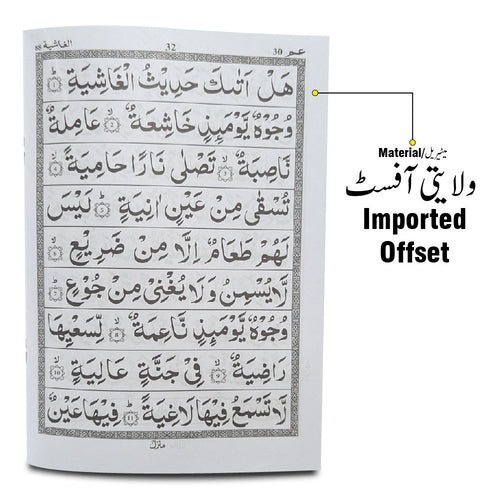 عـم ٣٠ 32 الغاشية ٨٨
هَلْ اَتٰىكَ حَدِيْثُ الْغَاشِيَةِ ۝١
وُجُوْهٌ يَّوْمَىِٕذٍ خَاشِعَةٌ ۝٢ عَامِلَةٌ
نَّاصِبَةٌ ۝٣ تَصْلٰى نَارًا حَامِيَةً ۝٤
تُسْقٰى مِنْ عَيْنٍ اٰنِيَةٍ ۝٥ لَيْسَ
لَهُمْ طَعَامٌ اِلَّا مِنْ ضَرِيْعٍ ۝٦
لَّا يُسْمِنُ وَلَا يُغْنِىْ مِنْ جُوْعٍ ۝٧
وُجُوْهٌ يَّوْمَىِٕذٍ نَّاعِمَةٌ ۝٨ لِّسَعْيِهَا
رَاضِيَةٌ ۝٩ فِىْ جَنَّةٍ عَالِيَةٍ ۝١٠
لَّا تَسْمَعُ فِيْهَا لَاغِيَةً ۝١١ فِيْهَا عَيْنٌ
منزل
Material/میٹیریل
ولایتی آفسٹ
Imported
Offset